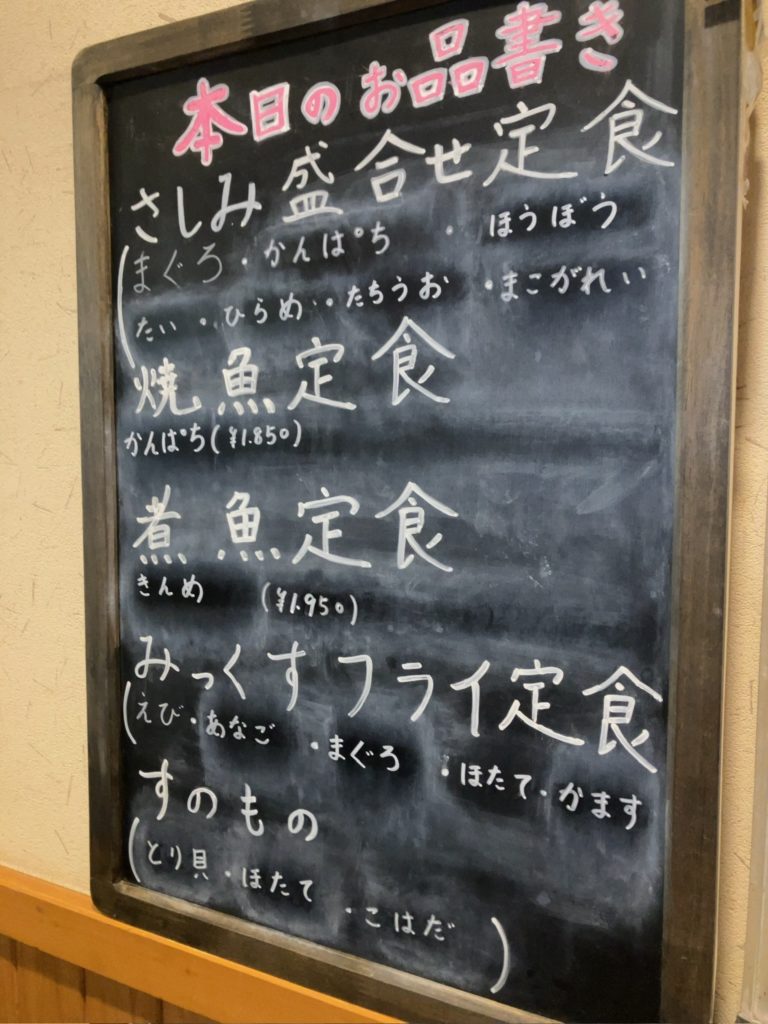 本日のお品書き
さしみ盛合せ定食
(まぐろ・かんぱち・ほうぼう
たい・ひらめ・たちうお・まこがれい
焼魚定食
かんぱち(¥1.850)
煮魚定食
きんめ (¥1.950)
みっくすフライ定食
(えび・あなご・まぐろ・ほたて・かます
すのもの
(とり貝・ほたて・こはだ)